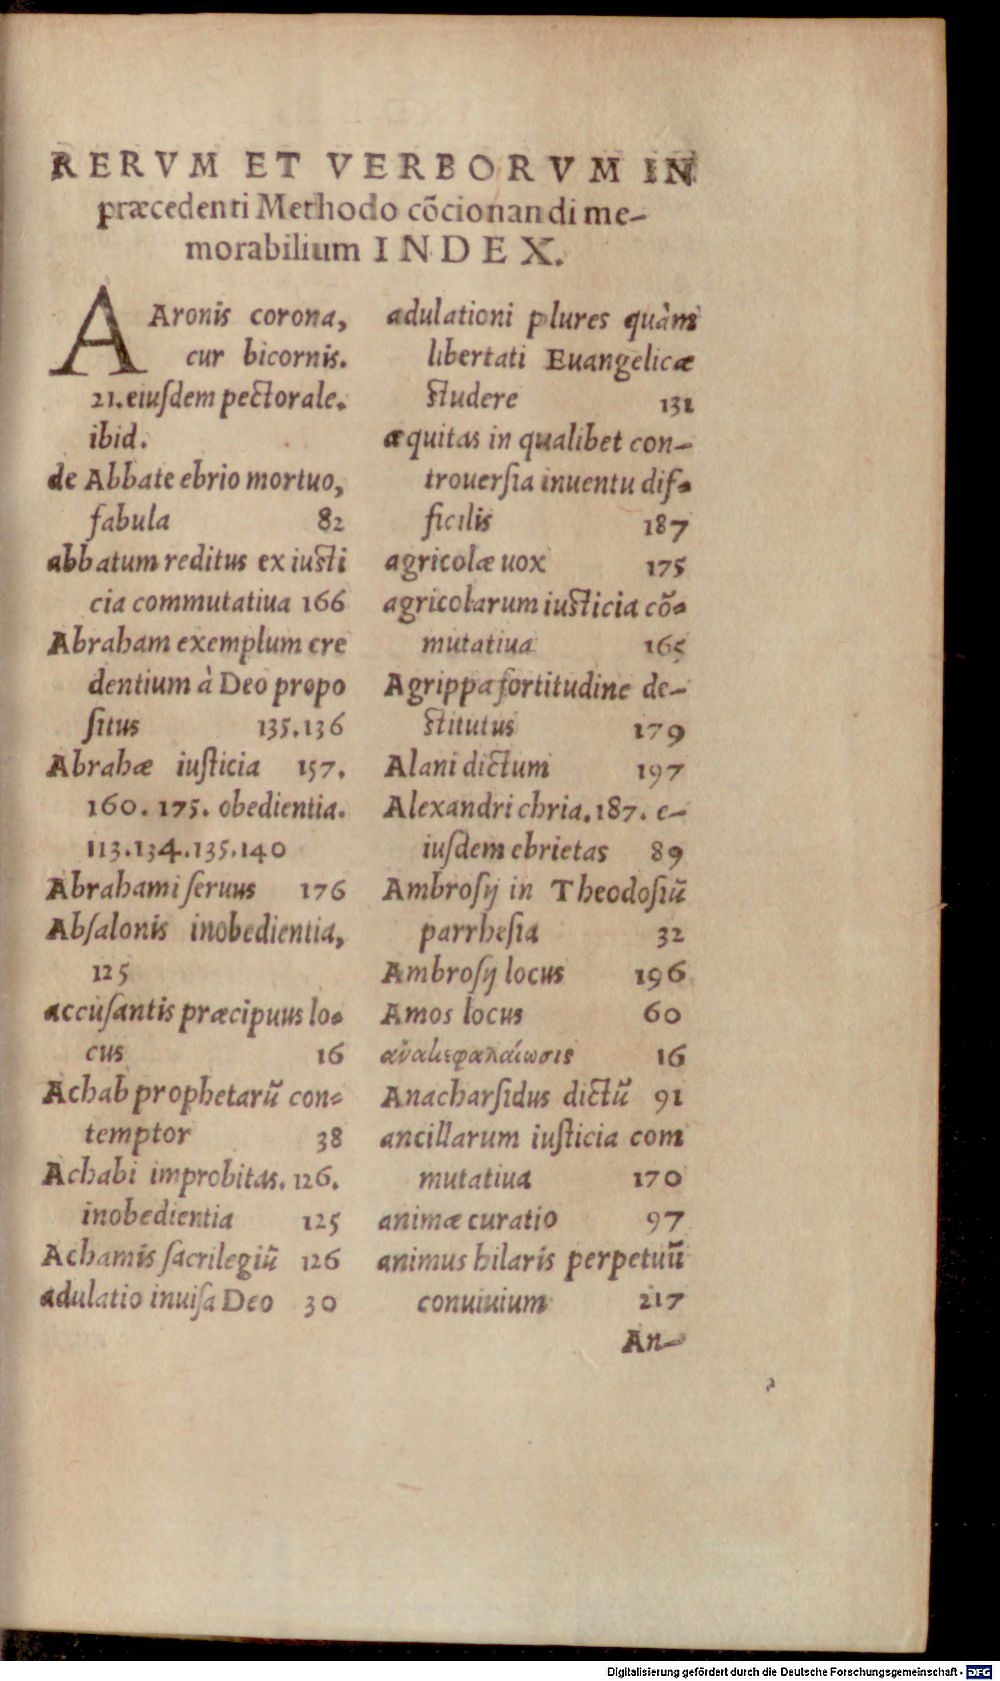 RERVM ET VERBORVM IN
præcedenti Methodo cõcionandi me-
morabilium INDEX.
AAronis corona,
cur bicornis.
21. eiuſdem pectorale.
ibid.
de Abbate ebrio mortuo,
fabula 82
abbatum reditus ex iusti
cia commutatiua 166
Abraham exemplum cre
dentium à Deo propo
ſitus 135.136
Abrahæ iuſticia 157.
160. 175. obedientia.
113.134.135.140
Abrahami ſeruus 176
Abſalonis inobedientia,
125
accuſantis præcipuus lo-
cus 16
Achab prophetarũ con-
temptor 38
Achabi improbitas. 126.
inobedientia 125
Achamis ſacrilegiũ 126
adulatio inuiſa Deo 30
adulationi plures quàm
libertati Euangelicæ
studere 131
æquitas in qualibet con-
trouerſia inuentu dif-
ficilis 187
agricolæ uox 175
agricolarum iusticia cõ-
mutatiua 165
Agrippa fortitudine de-
stitutus 179
Alani dictum 197
Alexandri chria. 187. e-
iuſdem ebrietas 89
Ambroſij in Theodoſiũ
parrheſia 32
Ambroſij locus 196
Amos locus 60
ἀνακεφαλαίωσις 16
Anacharſidus dictũ 91
ancillarum iuſticia com
mutatiua 170
animæ curatio 97
animus hilaris perpetuũ
conuiuium 217
An-
Digitalisierung gefördert durch die Deutsche Forschungsgemeinschaft - DFG